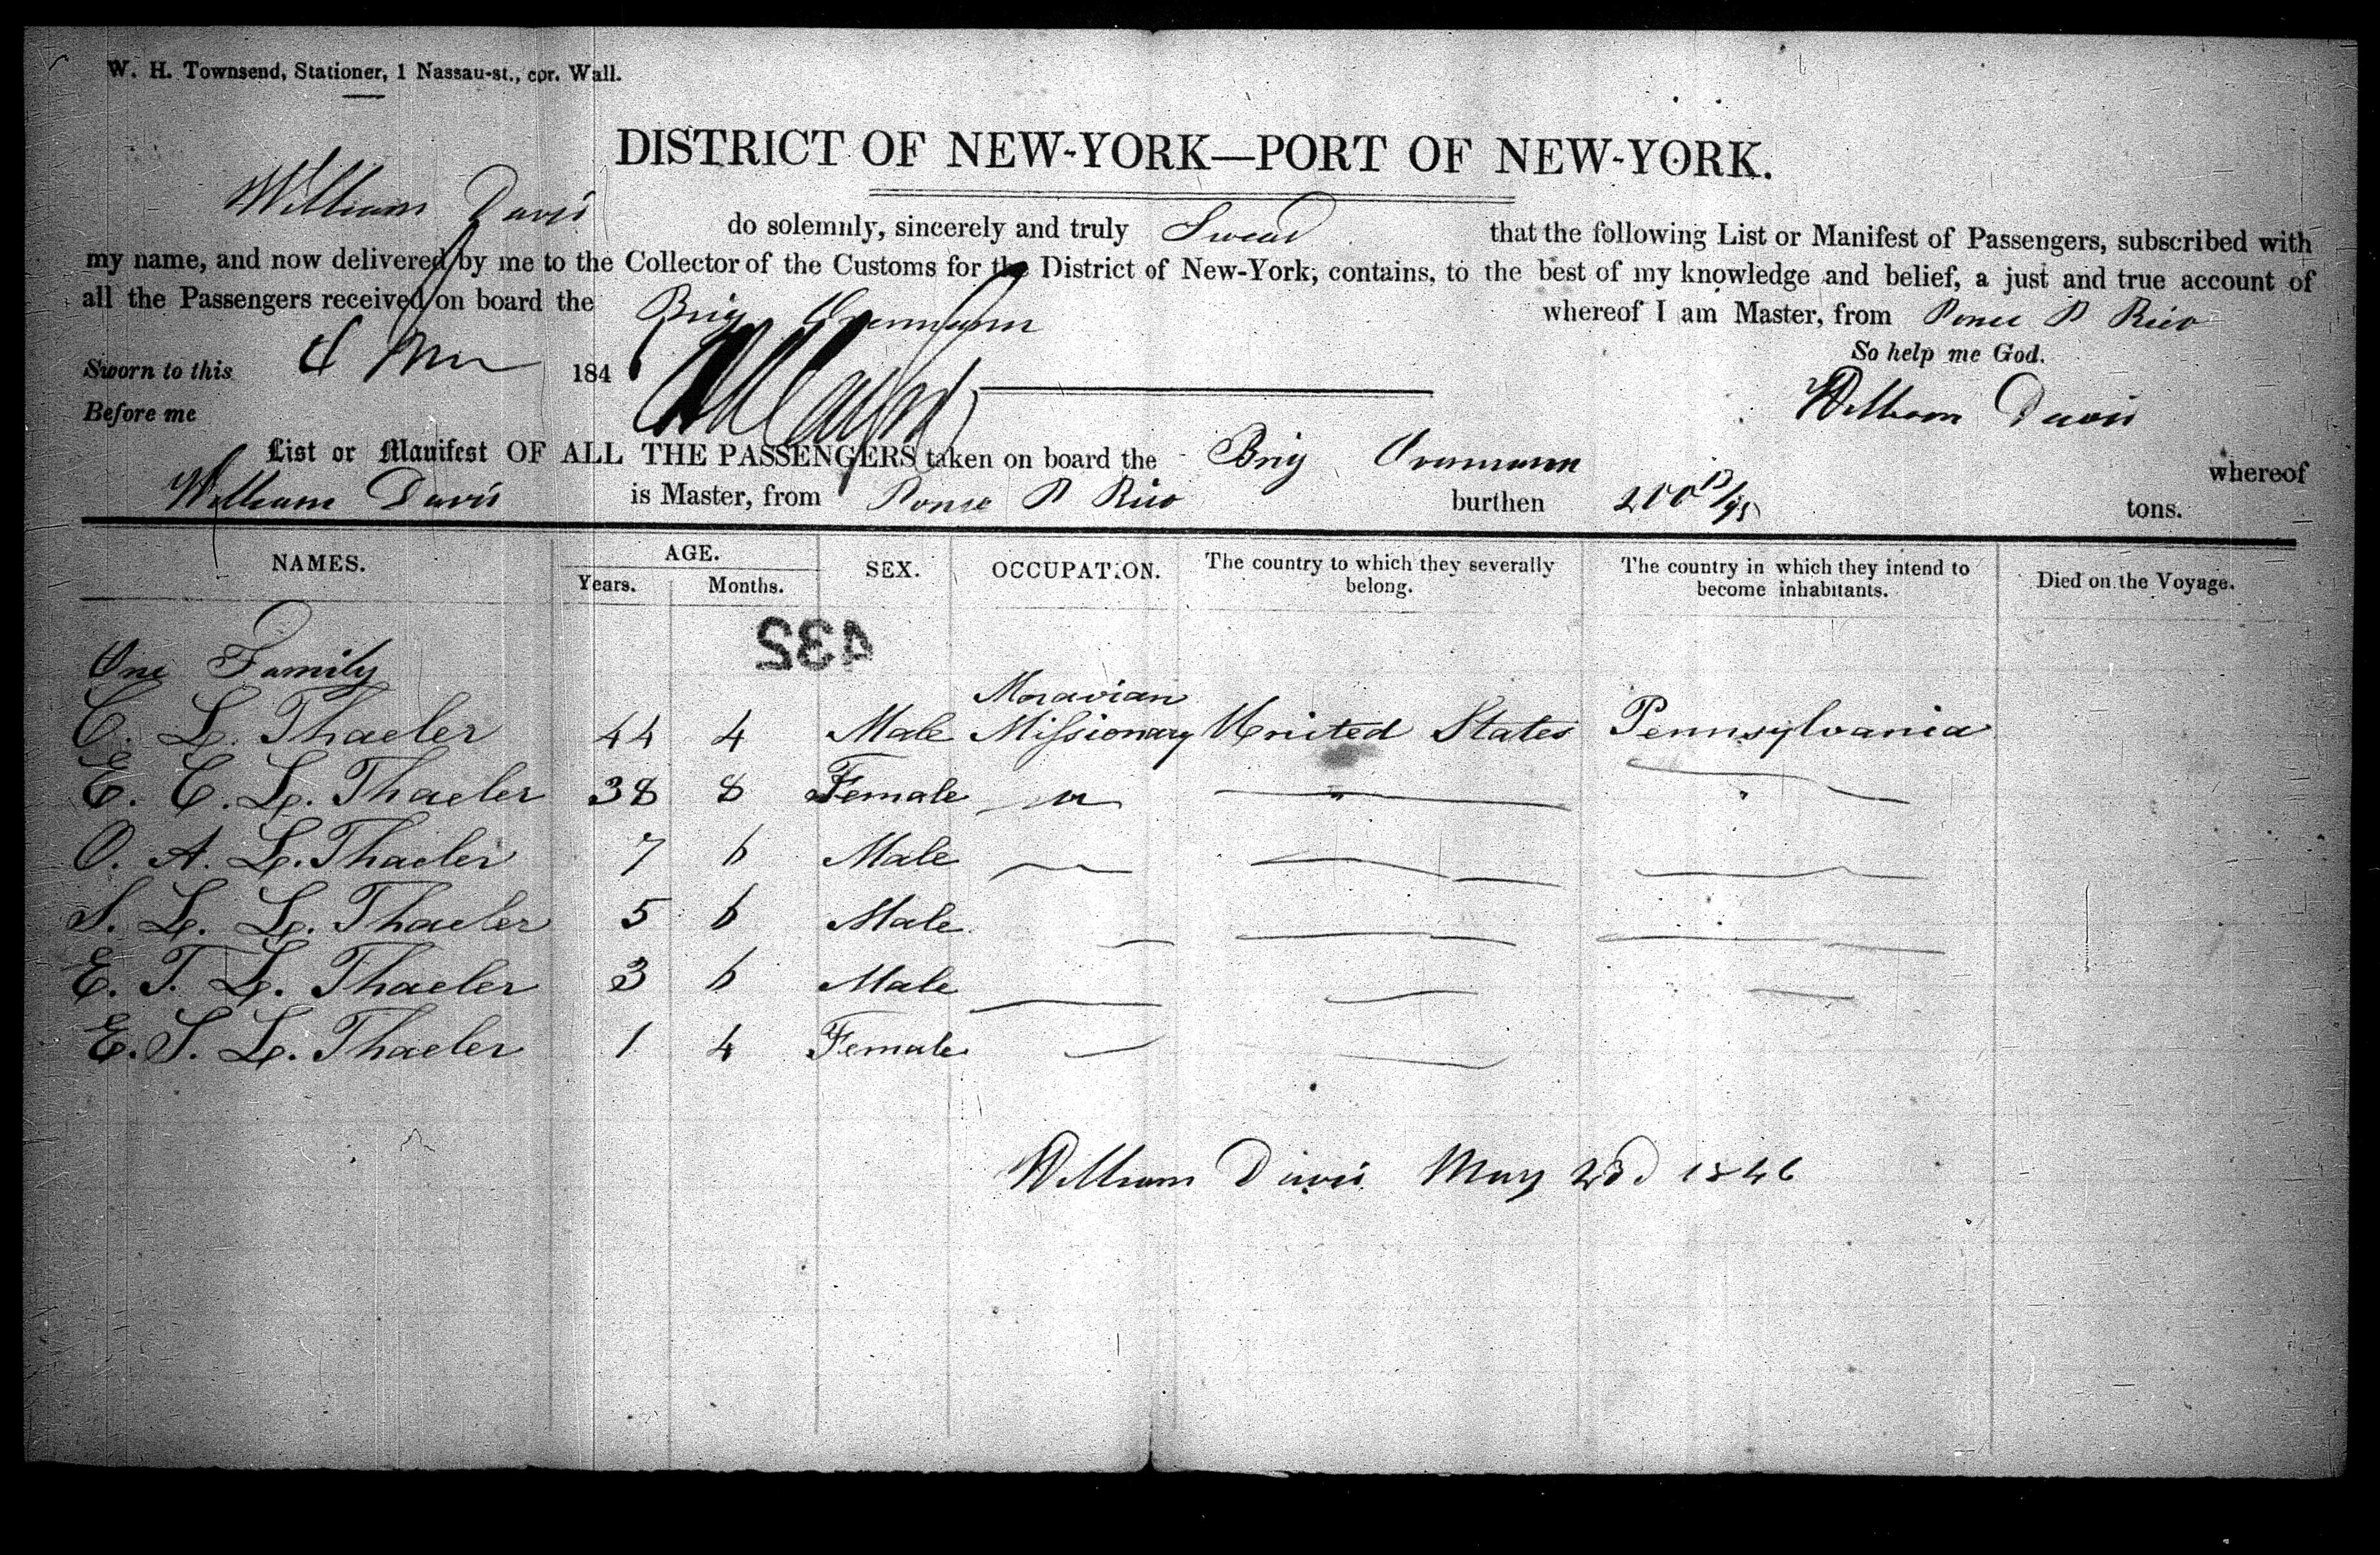 W. H. Townsend, Stationer, 1 Nassau-st., cor. Wall.
DISTRICT OF NEW-YORK—PORT OF NEW-YORK.
William Davis do solemnly, sincerely and truly Swear that the following List or Manifest of Passengers, subscribed with
my name, and now delivered by me to the Collector of the Customs for the District of New-York, contains, to the best of my knowledge and belief, a just and true account of
all the Passengers received on board the Brig whereof I am Master, from Ponce P Rico
So help me God.
Sworn to this 4 184
William Davis
Before me
List or Manifest OF ALL THE PASSENGERS taken on board the Brig whereof
William Davis is Master, from Ponce P Rico burthen tons.
NAMES. AGE. SEX. OCCUPATION. The country to which they severally belong. The country in which they intend to become inhabitants. Died on the Voyage.
Years. Months.
432
One Family
Moravian
C. L. Thaeler 44 4 Male Missionary United States Pennsylvania
E. C. L. Thaeler 38 8 Female
O. A. L. Thaeler 7 6 Male
S. L. L. Thaeler 5 6 Male
E. T. L. Thaeler 3 6 Male
E. S. L. Thaeler 1 4 Female
William Davis May 2d 1846